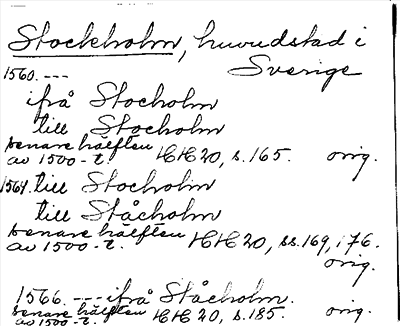 Stockholm, huvudstad i
Sverige
1560. ---
ifrå Stocholm
till Stocholm
senare hälften
av 1500-t. HH 20, s. 165. orig.
1564. till Stocholm
till Ståcholm
senare hälften
av 1500-t. HH 20, ss. 169, 176.
orig.
1566. --- ifrå Ståcholm.
senare hälften
av 1500-t. HH 20, s. 185. orig.